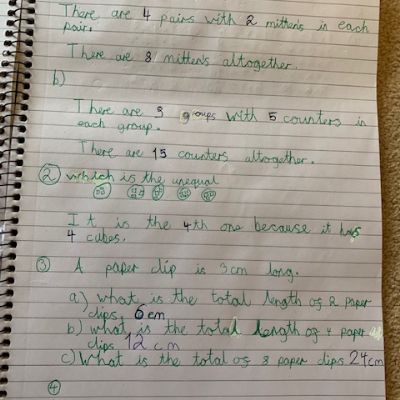 There are 4 pairs with 2 mittens in each
pair.
There are 8 mittens altogether.
b)
There are 3 groups with 5 counters in
each group.
There are 15 counters altogether.
② which is the unequal
It is the 4th one because it has
4 cubes.
③ A paper clip is 3cm long.
a) what is the total length of 2 paper
clips. 6 cm
b) what is the total length of 4 paper
clips 12 cm
c) What is the total of 8 paper clips 24cm
④